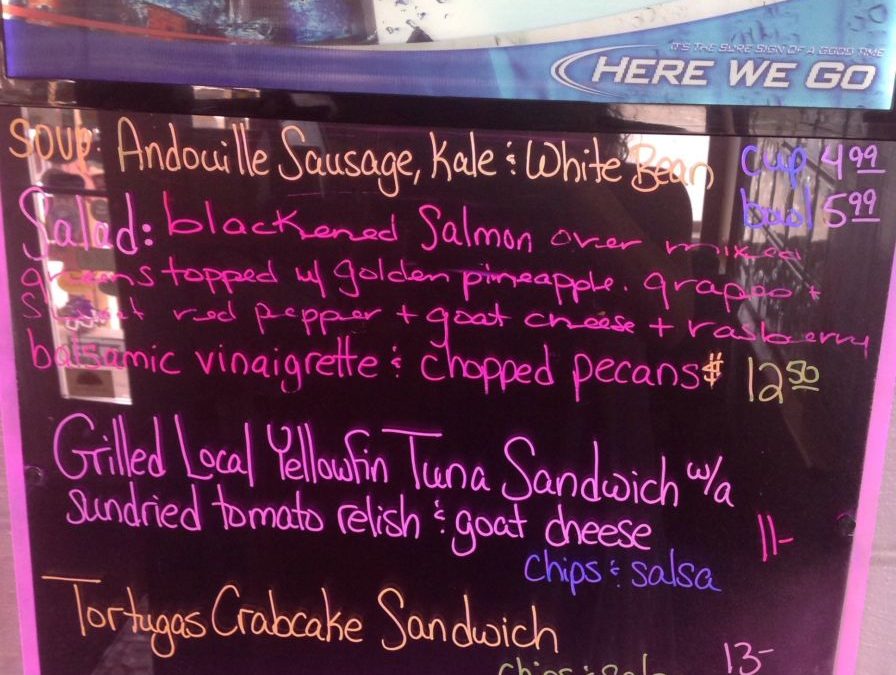 IT'S THE SURE SIGN OF A GOOD TIME
HERE WE GO
Soup: Andouille Sausage, Kale & White Bean cup 4 99
bowl 5 99
Salad: blackened Salmon over mixed
greens topped w/ golden pineapple, grapes +
sweet red pepper + goat cheese + rasberry
balsamic vinaigrette & chopped pecans $ 12 50
Grilled Local Yellowfin Tuna Sandwich w/a
sundried tomato relish & goat cheese 11-
chips & salsa
Tortugas Crabcake Sandwich
13-
chips & sals